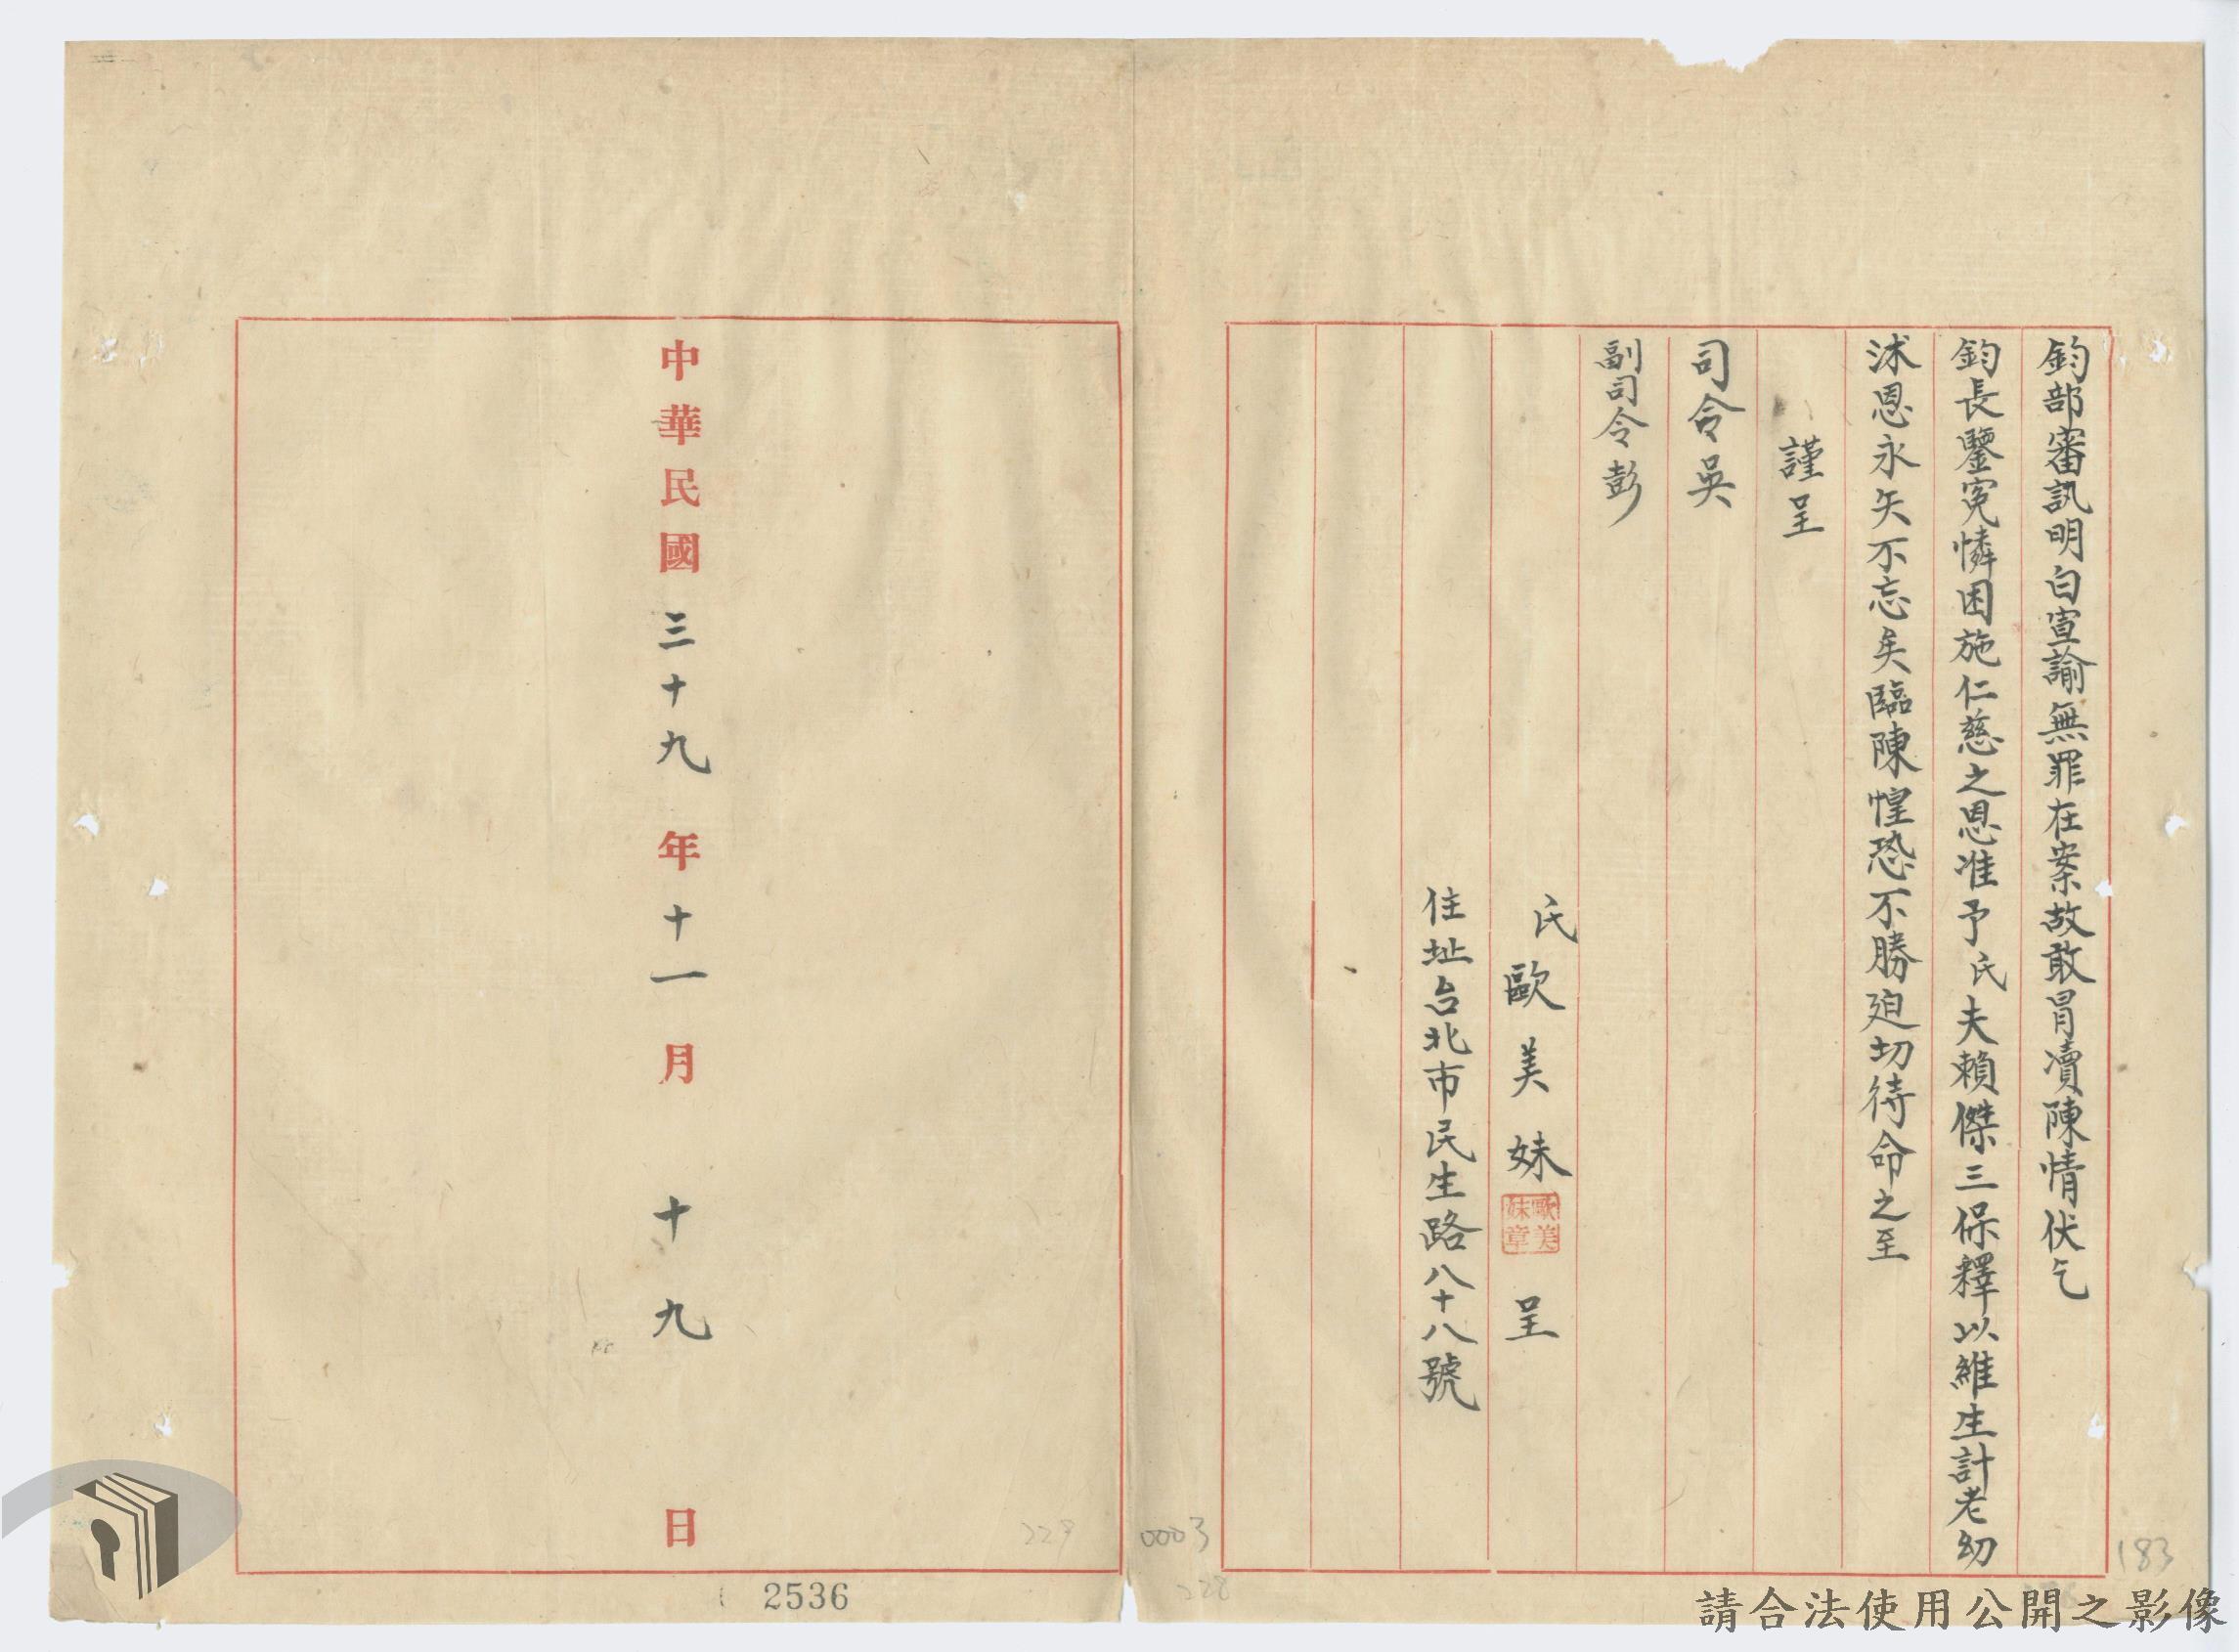 鈞部審訊明白宣諭無罪在案故敢冒瀆陳情伏乞
鈞長鑒冤憐困施仁慈之恩准予氏夫賴傑三保釋以維生計老幼
沐恩永矢不忘矣臨陳惶恐不勝廹切待命之至
謹呈
司令吳
副司令彭
氏歐美妹 呈
歐美妹章
住址台北市民生路八十八號
中華民國三十九年十一月十九日
183
0003
228
229
2536
請合法使用公開之影像